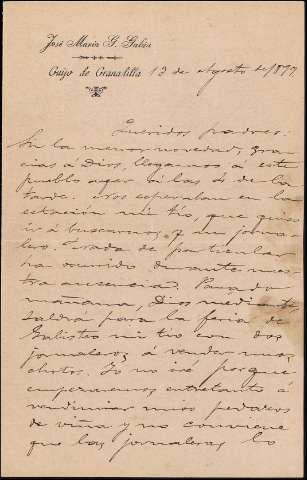 José María G. Galán
Guijo de Granadilla 13 de agosto de 1899
Queridos padres:
Sin la menor novedad, gra-
cias á Dios, llegamos á este
pueblo ayer á las 4 de la
tarde. Nos esperaban en la
estación mi tío, que quiso
ir á buscarnos, y un jorna-
lero. Nada de particular
ha ocurrido durante nues-
tra ausencia. Pasado
mañana, Dios mediante
saldrá para la feria de
Galisteo mi tío con dos
jornaleros á vender unos
chotos. Yo no iré porque
empezaremos entretanto á
vendimiar unos pedazos
de viña y no conviene
que los jornaleros lo